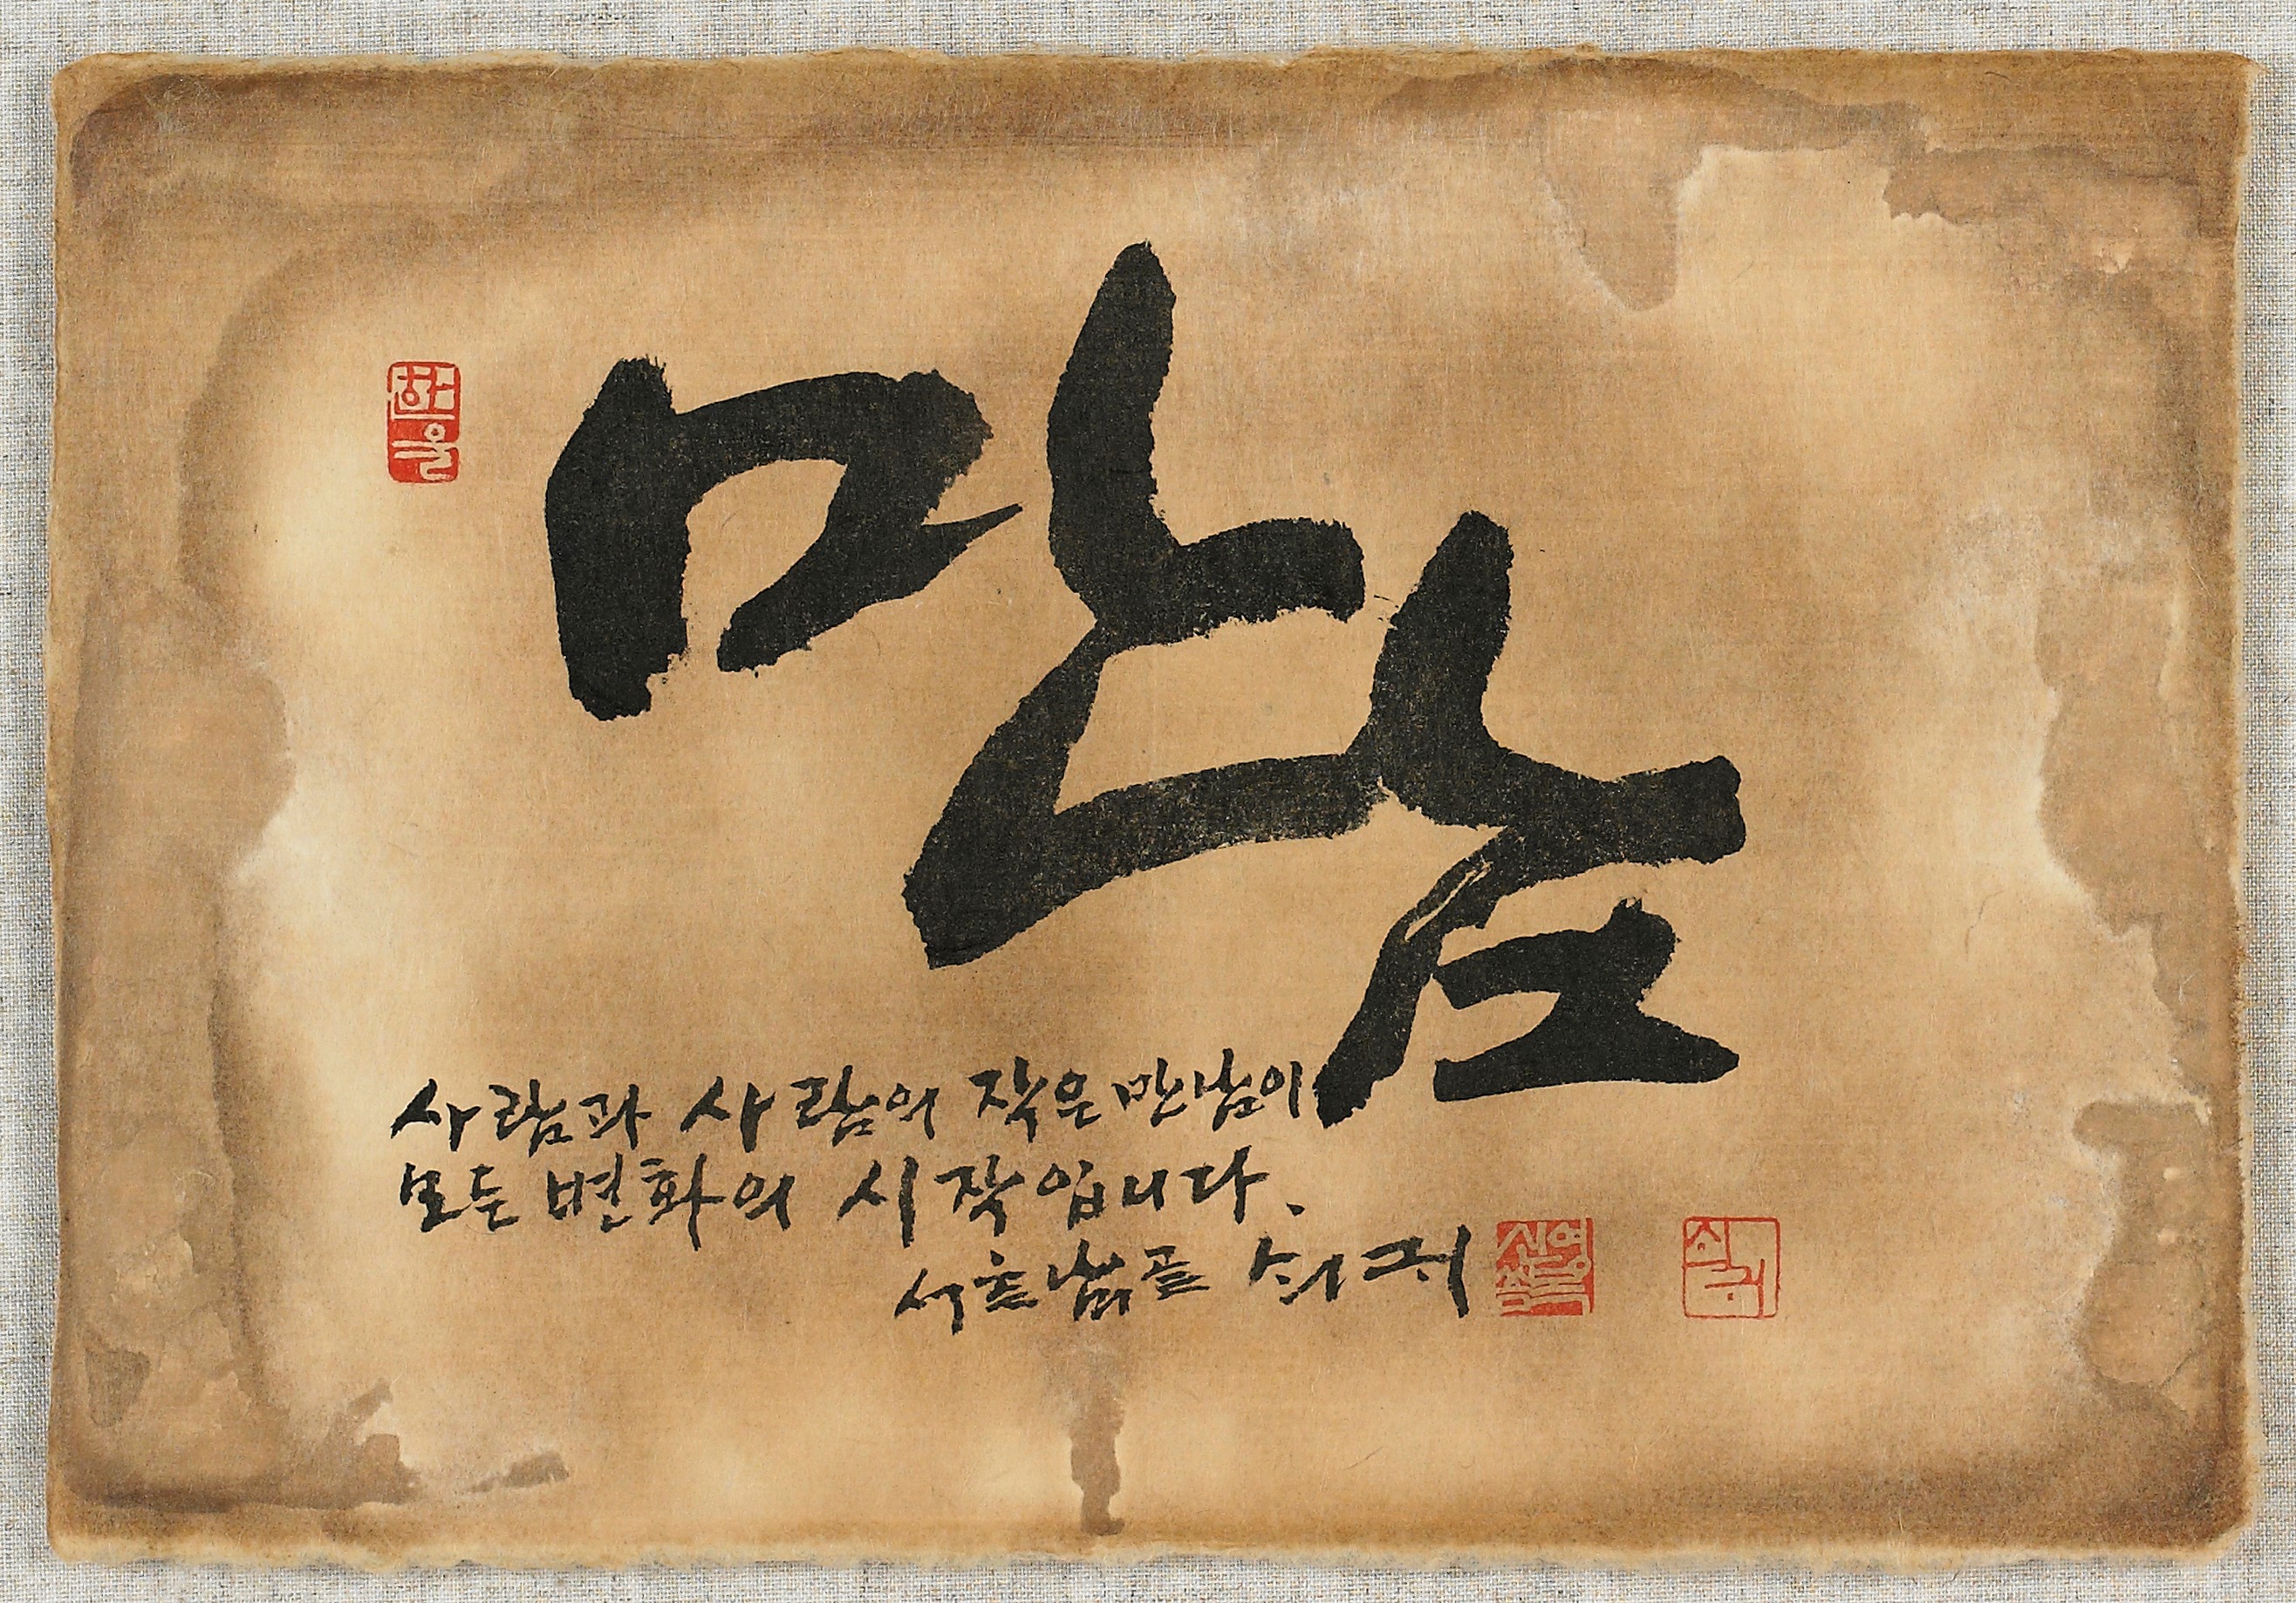 한울
만남
사람과 사람의 작은 만남이
모든 변화의 시작입니다.
서초남골 쇠귀
쇠귀